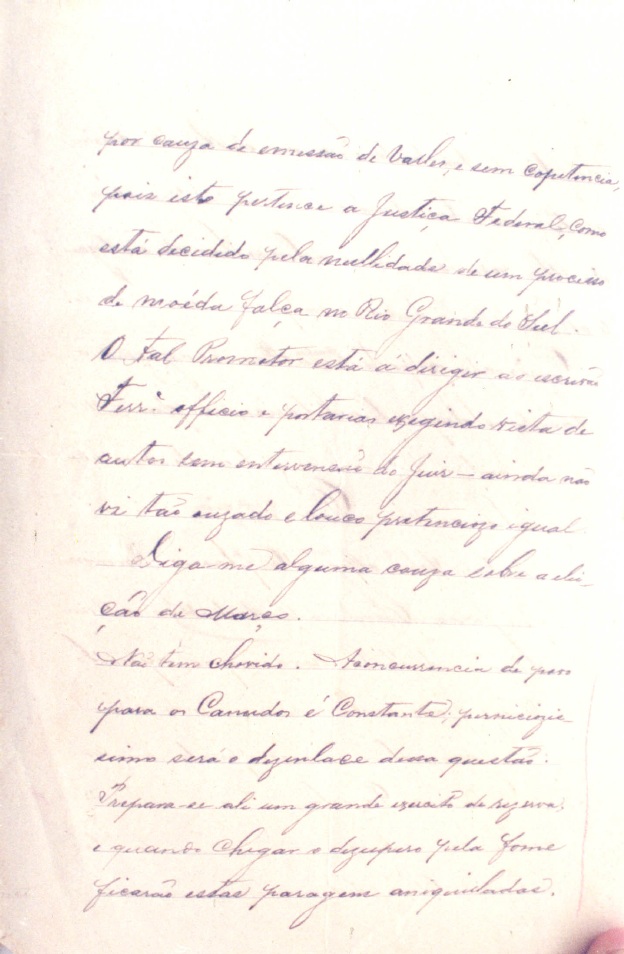 por cauza de emissão de Valles, e sem copetencia,
pois isto pertence a Justiça Federal, como
está decidido pela nullidade de um processo
de moéda falça no Rio Grande do Sul.
O tal Promotor está á dirigir ao escrivão
Ferrª officio e portarias exegindo vista de
autos sem entervensão do Juiz — ainda não
vi tão ouzado e louco pretenciozo igual.
Diga-me alguma couza sobre a elei-
ção de Março.
Não tem chovido. A concurrencia de povo
para os Canudos é Constante; perniciozis-
simo será o dezenlace dessa questão.
Prepara-se ali um grande exercito de rezerva,
e quando chegar o dezespero pela fome
ficarão estas paragens aniquiladas.